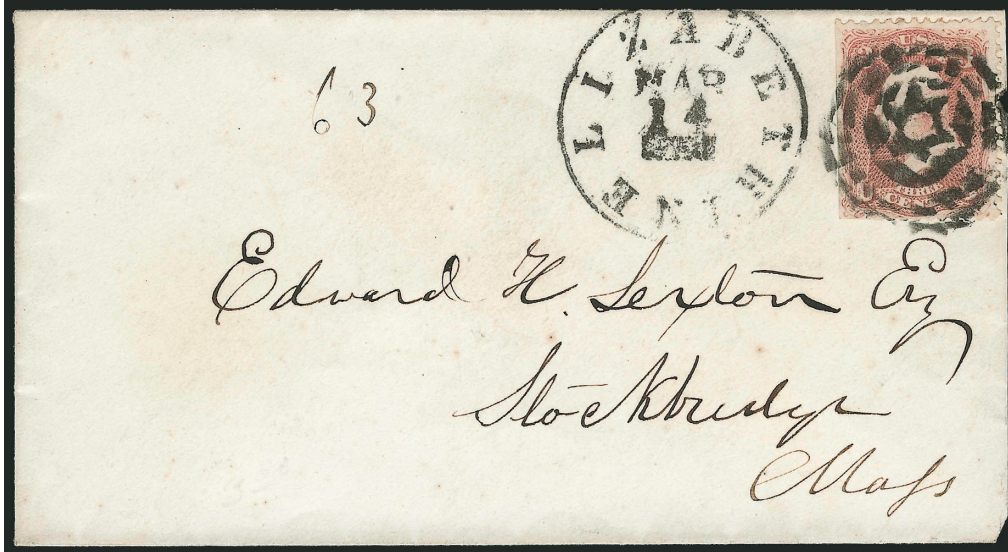 ELIZABETH N.J.
MAR
14
U S
THREE
CENTS
63
Edward H. Sexton Esq
Stockbridge
Mass